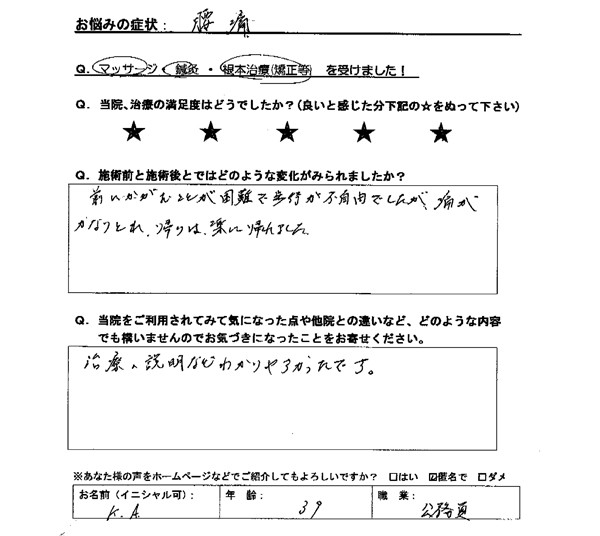 お悩みの症状： 腰痛
Q. マッサージ・鍼灸・根本治療(矯正等) を受けました！
Q. 当院、治療の満足度はどうでしたか？(良いと感じた分下記の☆をぬって下さい)
★ ★ ★ ★ ★
Q. 施術前と施術後とではどのような変化がみられましたか？
前にかがむことが困難で歩行が不自由でしたが、痛みが
かなりとれ、帰りは、楽に帰れました
Q. 当院をご利用されてみて気になった点や他院との違いなど、どのような内容
でも構いませんのでお気づきになったことをお寄せください。
治療、説明などわかりやすかったです。
※あなた様の声をホームページなどでご紹介してもよろしいですか？ □はい ☑匿名で □ダメ
お名前(イニシャル可)： 年 齢： 職 業：
K.A 39 公務員